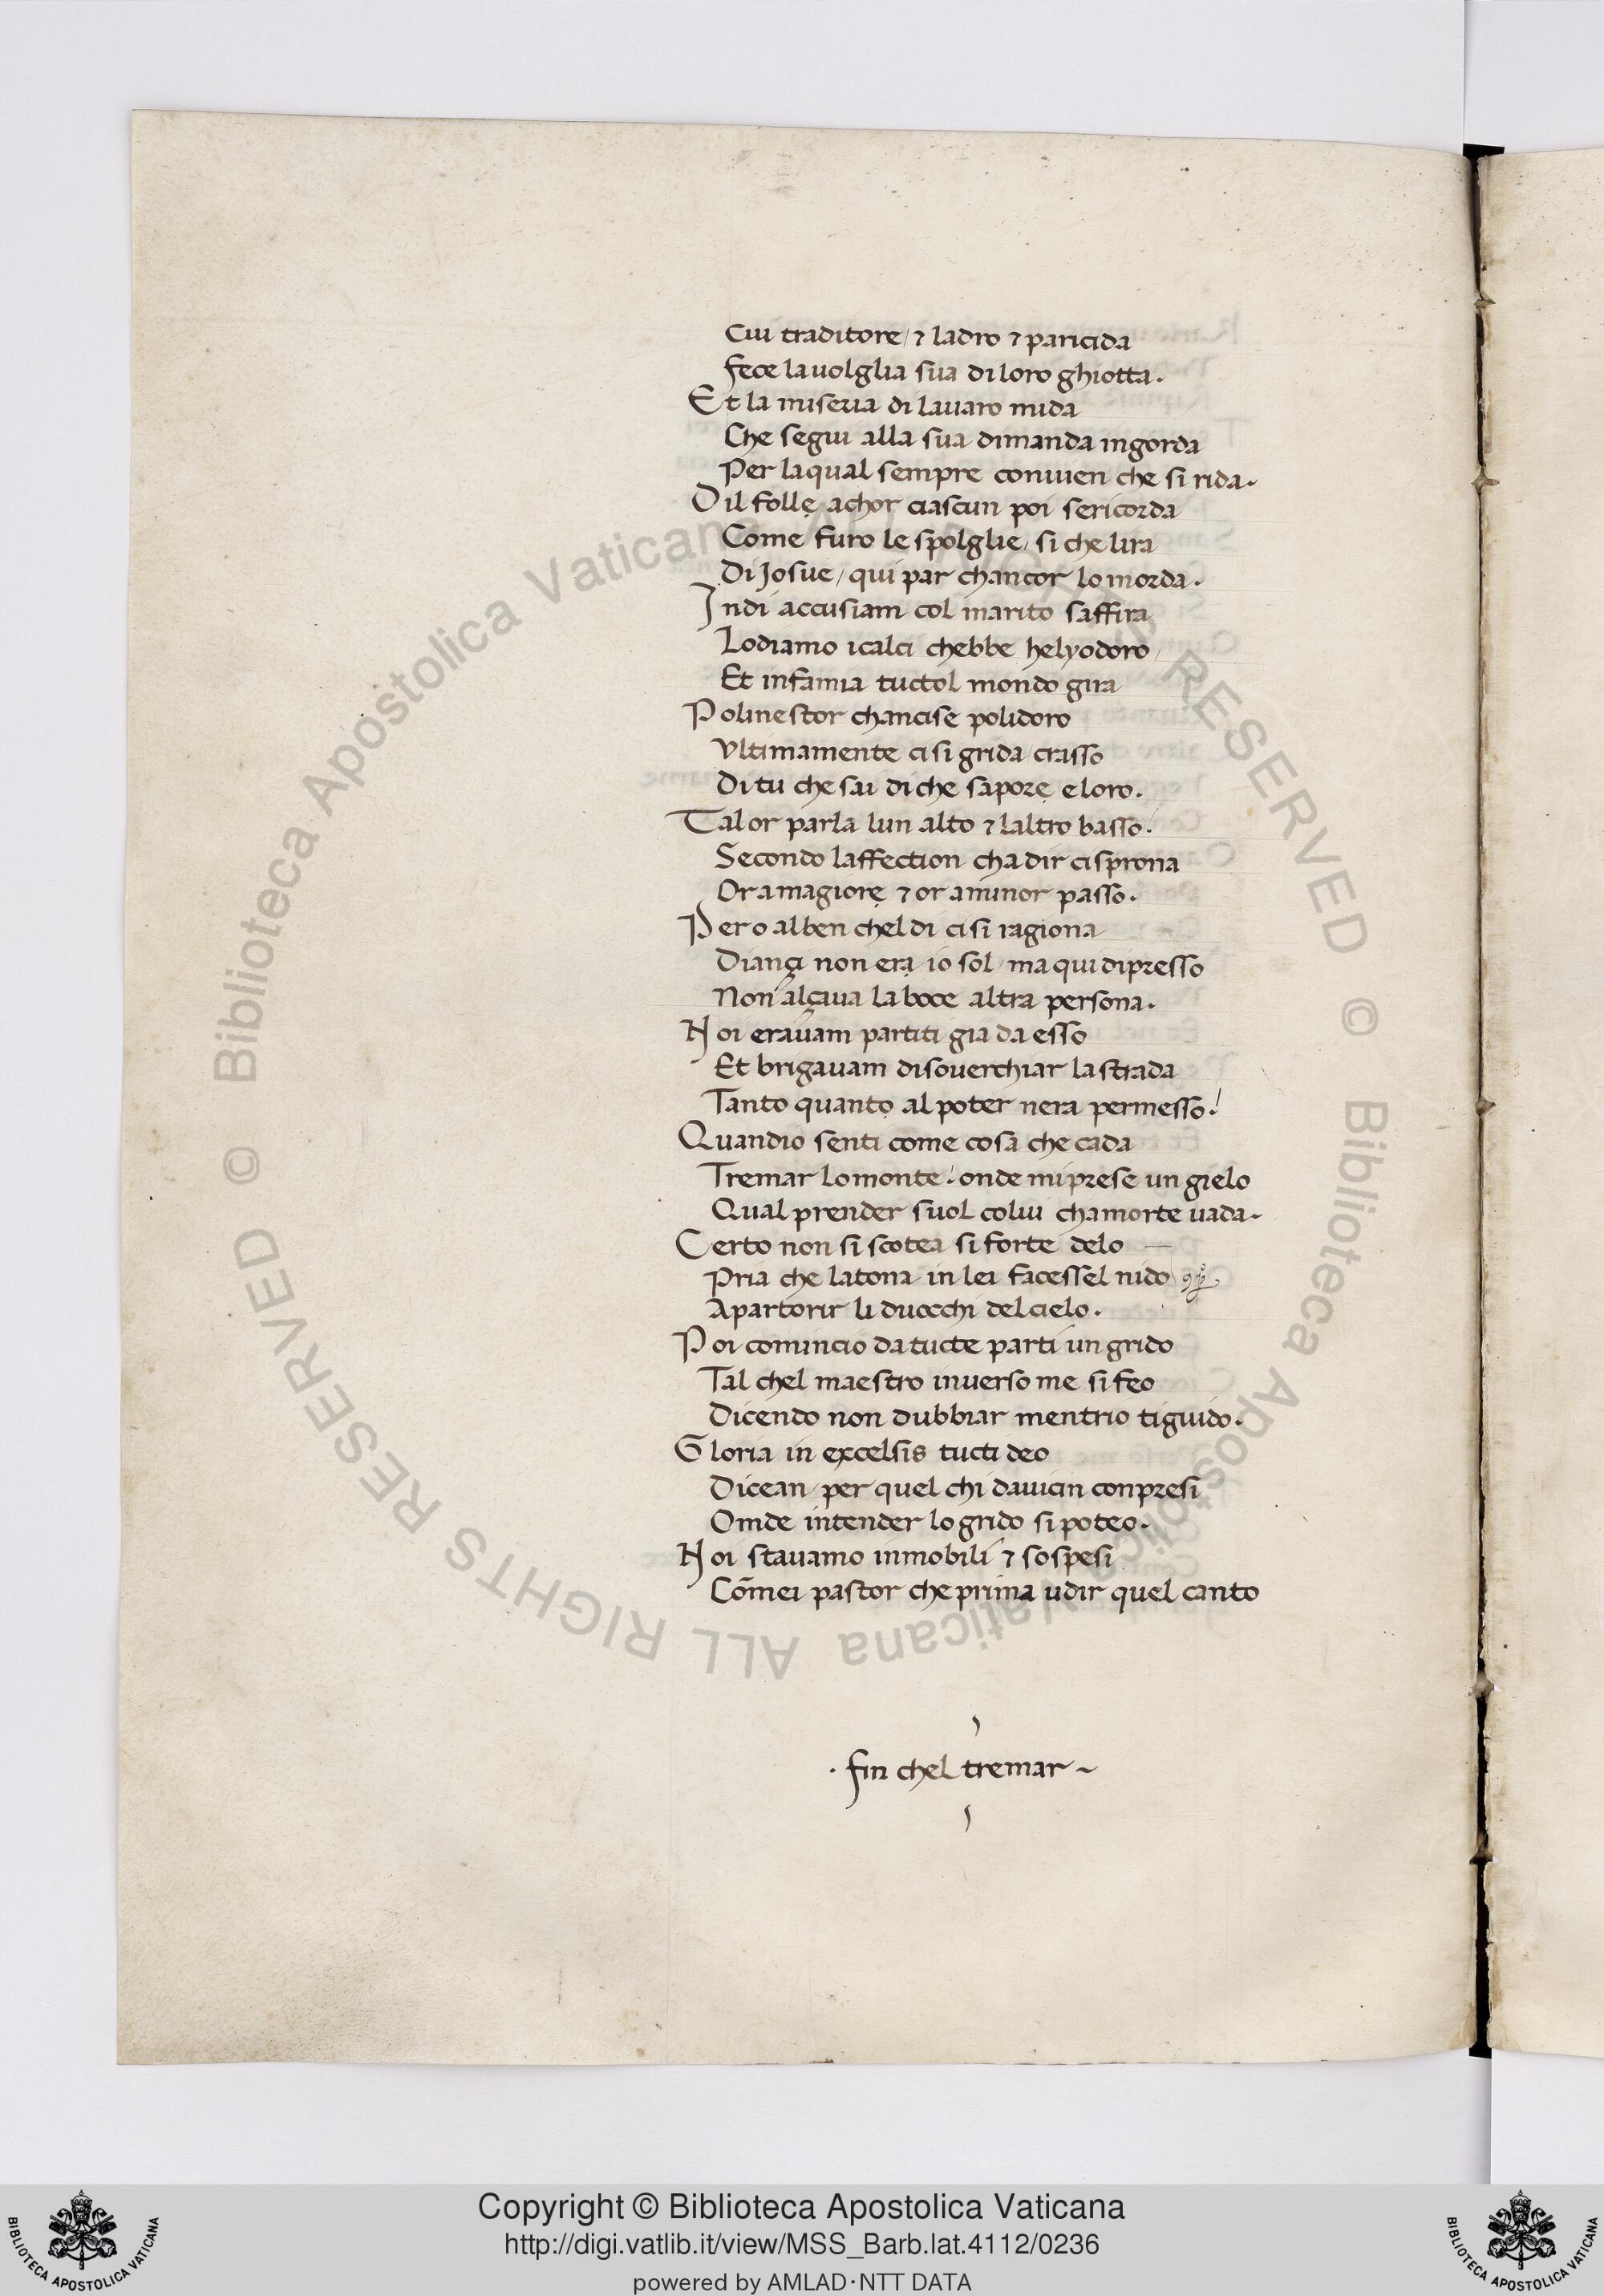 Cui traditore / ⁊ ladro ⁊ paricida
fece lauolglia sua di loro ghiotta.
Et la miseria di lauaro mida
Che segui alla sua dimanda ingorda
Per laqual sempre conuien che si rida.
Dil folle achor ciascun poi sericorda
Come furo le spolglie / si che lira
Di Josue / qui par chancor lo morda.
Indi accusiam col marito saffira
Lodiamo icalci chebbe helyodoro /
Et infamia tuctol mondo gira
Polinestor chancise polidoro
Vltimamente ci si grida crasso
Di tu che sai di che sapore e loro.
Talor parla lun alto ⁊ laltro basso.
Secondo laffection cha dir ci sprona
Or a magiore ⁊ or a minor passo.
Pero al ben chel di ci si ragiona
Diançi non era io sol / ma qui dipresso
Non alçaua la boce altra persona.
Noi erauam partiti gia da esso
Et brigauam disouerchiar la strada
Tanto quanto al poter nera permesso.
Quandio senti come cosa che cada
Tremar lo monte! onde mi prese un gielo
Qual prender suol colui chamorte uada.
Certo non si scotea si forte delo
Pria che latona in lei facessel nido
Apartorir li duocchi del cielo.
Poi comincio da tucte parti un grido
Tal chel maestro inuerso me si feo
Dicendo non dubbiar mentrio ti guido.
Gloria in excelsis tucti deo
Dicean / per quel chi dauicin conpresi
Omde intender lo grido si poteo.
Noi stauamo inmobili ⁊ sospesi
Com̄ei pastor che prima udir quel canto
. fin chel tremar ~
© Biblioteca Apostolica Vaticana ALL RIGHTS RESERVED © Biblioteca Apostolica Vaticana ALL RIGHTS RESERVED
Copyright © Biblioteca Apostolica Vaticana
http://digi.vatlib.it/view/MSS_Barb.lat.4112/0236
powered by AMLAD·NTT DATA
BIBLIOTECA APOSTOLICA VATICANA
BIBLIOTECA APOSTOLICA VATICANA